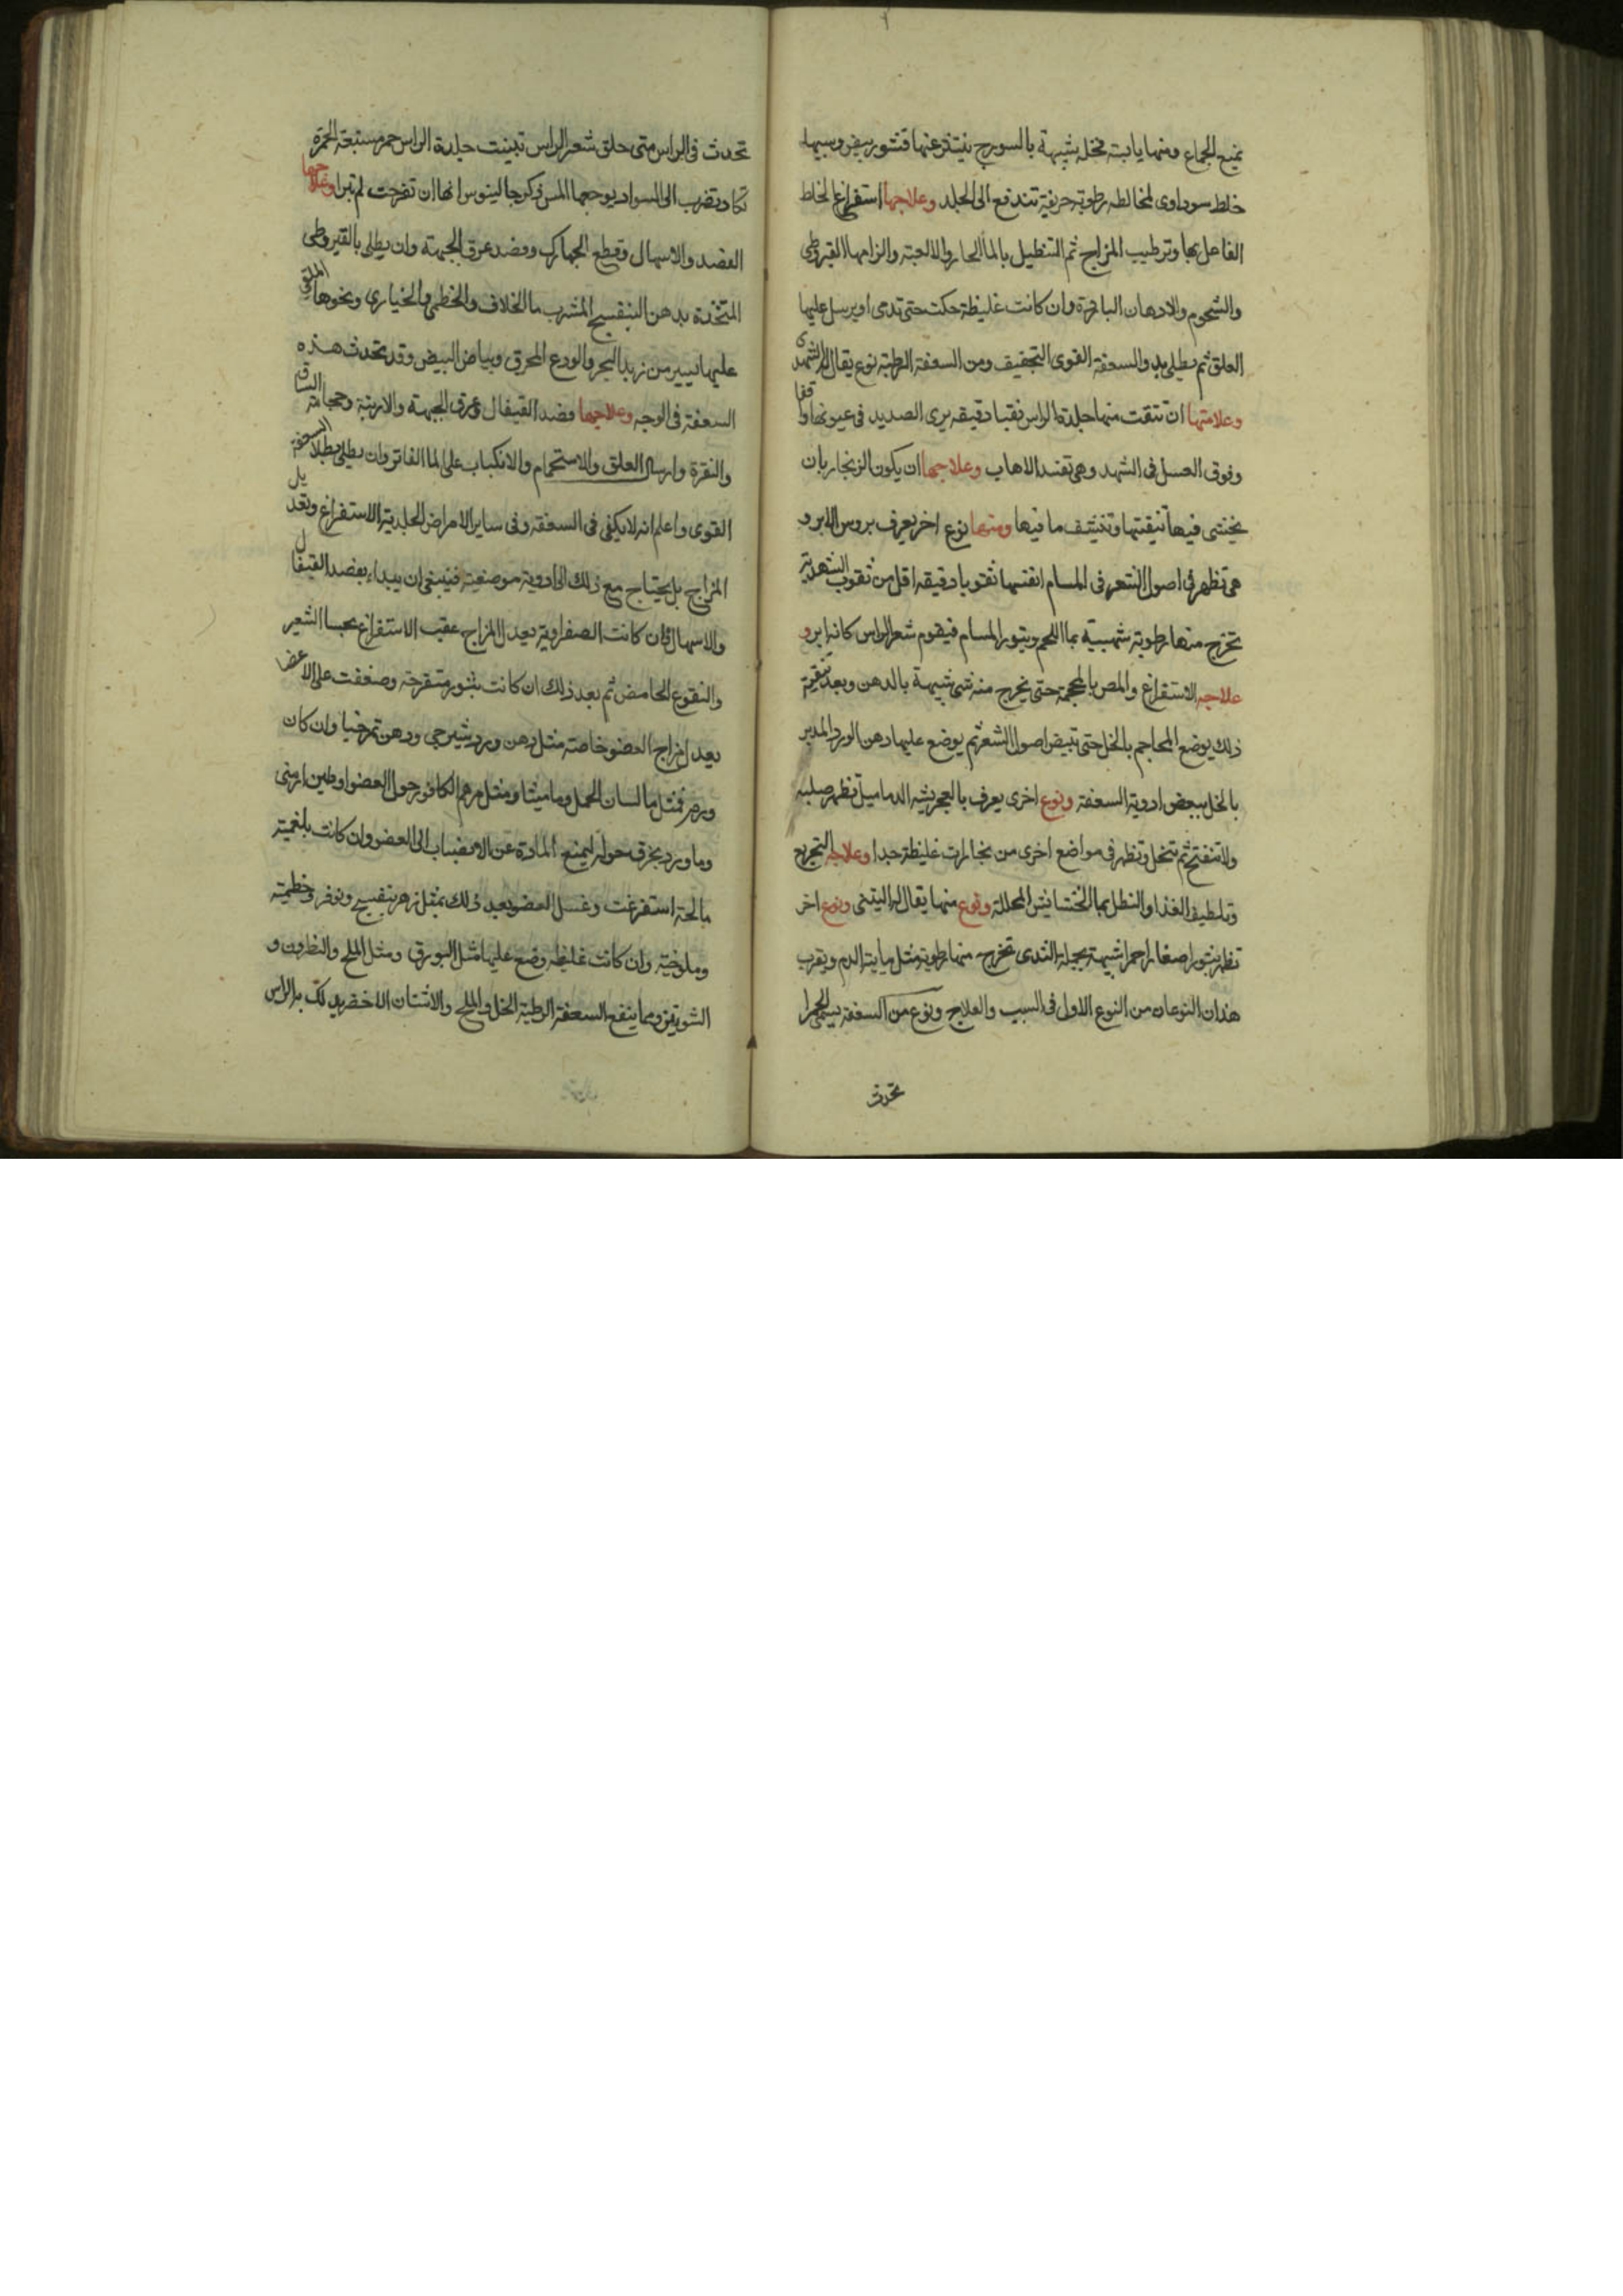 يمنع الجماع ومنها يابسة نخلة شبيهة بالسورج ينتذر عنها قشور بيض وسببها
خلط سوداوى لمخالطه رطوبة حريفة تندفع الى الجلد وعلاجها استفراغ الخلط
الفاعل لها وترطيب المزاج ثم التنطيل بالماء الحار والالعبة والزامها القيروطى
والشحوم والادهان الباردة وان كانت غليظة حكت حتى تدمى او يرسل عليها
العلق ثم يطلى بدواء السعفة القوى التجفيف ومن السعفة الرطبة نوع يقال له الشهدى
وعلامتها ان تنقب منها جلدة الراس نقبا دقيقه يرى الصديد فى عيونها واقفا
وقوف العسل فى الشهد وهى تفسد الاهاب وعلاجها ان يكون الزنجار بان
يختشى فيها تنقيتها وتنشف ما فيها ومنها نوع اخر يعرف بروس الابر و
هى تظهر فى اصول الشعر فى المسام انفسها ثقوبا دقيقه اقل من ثقوب الشهدية
تخرج منها رطوبة شبيهة بماء اللحم ويثور المسام فيقوم شعر الراس كانه ابر و
علاجه الاستفراغ والمص بالمحجمة حتى يخرج منه شى شبيهة بالدهن وبعد تنقية
ذلك يوضع المحاجم بالخل حتى تبيض اصول الشعر ثم يوضع عليها دهن الورد المدبر
بالخل ببعض ادوية السعفة ونوع اخرى يعرف بالعجر يشبه الدماميل تظهر صلبه
ولا تنفتح ثم تنحل وتظهر فى مواضع اخرى من بخارات غليظة جدا وعلاجه التجويع
وتلطيف الغذا والنطل بماء الخشايش المحللة ونوع منها يقال له التينى ونوع اخر
تظهر بثورا صغارا حمرا شبيهة بحلمة الثدى تخرج منها رطوبة مثل مايية الدم ويقرب
هذان النوعان من النوع الاول فى السبب والعلاج ونوع من السعفة يسمى الحمرا
تحدث
تحدث فى الراس متى حلق شعر الراس تبينت جلدة الراس حمر مشبعة الحمرة
تكاد تضرب الى السواد يوجعها المس ذكر جالينوس انها ان تقرحت لم تبرا وعلاجها
الفصد والاسهال وقطع الجهارك وفصد عرق الجبهة وان يطلى بالقيروطى
المتخذة بدهن البنفسج المشرب ماء الخلاف والخطمى والخيارى ونحوها الملقى
عليها يسير من زبد البحر والودع المحرق وبياض البيض وقد تحدث هذه
السعفة فى الوجه وعلاجها فصد القيفال وعرق الجبهة والارنبة وحجامة الساق
والنقرة وارسال العلق والاستحمام والانكباب على الماء الفاتر وان يطلى بطلاء السعفة
القوى واعلم انه لا يكفى فى السعفة وفى ساير الامراض الجلدية الاستفراغ وتعديل
المزاج بل يحتاج مع ذلك الى ادوية موضعية فينبغى ان يبداء بفصد القيفال
والاسهال فان كانت الصفراوية يعدل المزاج عقب الاستفراغ بحساء الشعير
والنقوع الحامض ثم بعد ذلك ان كانت بثور متقرحة وضعفت على الاعضا
يعدل مزاج العضو خاصة مثل دهن ورد شيرجى ودهن تمرخيا وان كان
ورم فمثل ماء لسان الحمل وماميثا ومثل مرهم الكافور حول العضو او طين ارمنى
وماورد بخرق حوله ليمنع المادة عن الانصباب الى العضو وان كانت بلغمية
مالحة استفرغت وغسل العضو بعد ذلك بمثل زهر بنفسج ونوفر وخطمية
وملوخية وان كانت غليظه وضع عليها مثل البورق ومثل الملح والنطرون و
الشونيز ومما ينفع السعفة الرطبة الخل والملح والاشنان الاخضر يدلك به الراس